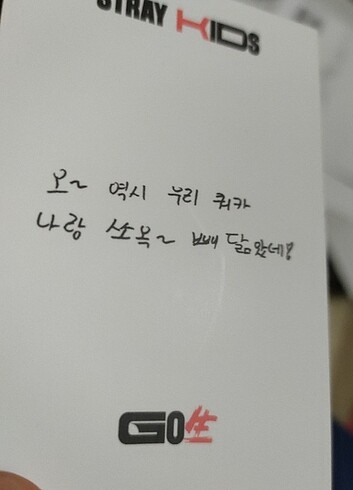 STRAY KIDS
오~ 역시 우리 쿼카
나랑 쏘옥~ 빼 닮았네!
GO生